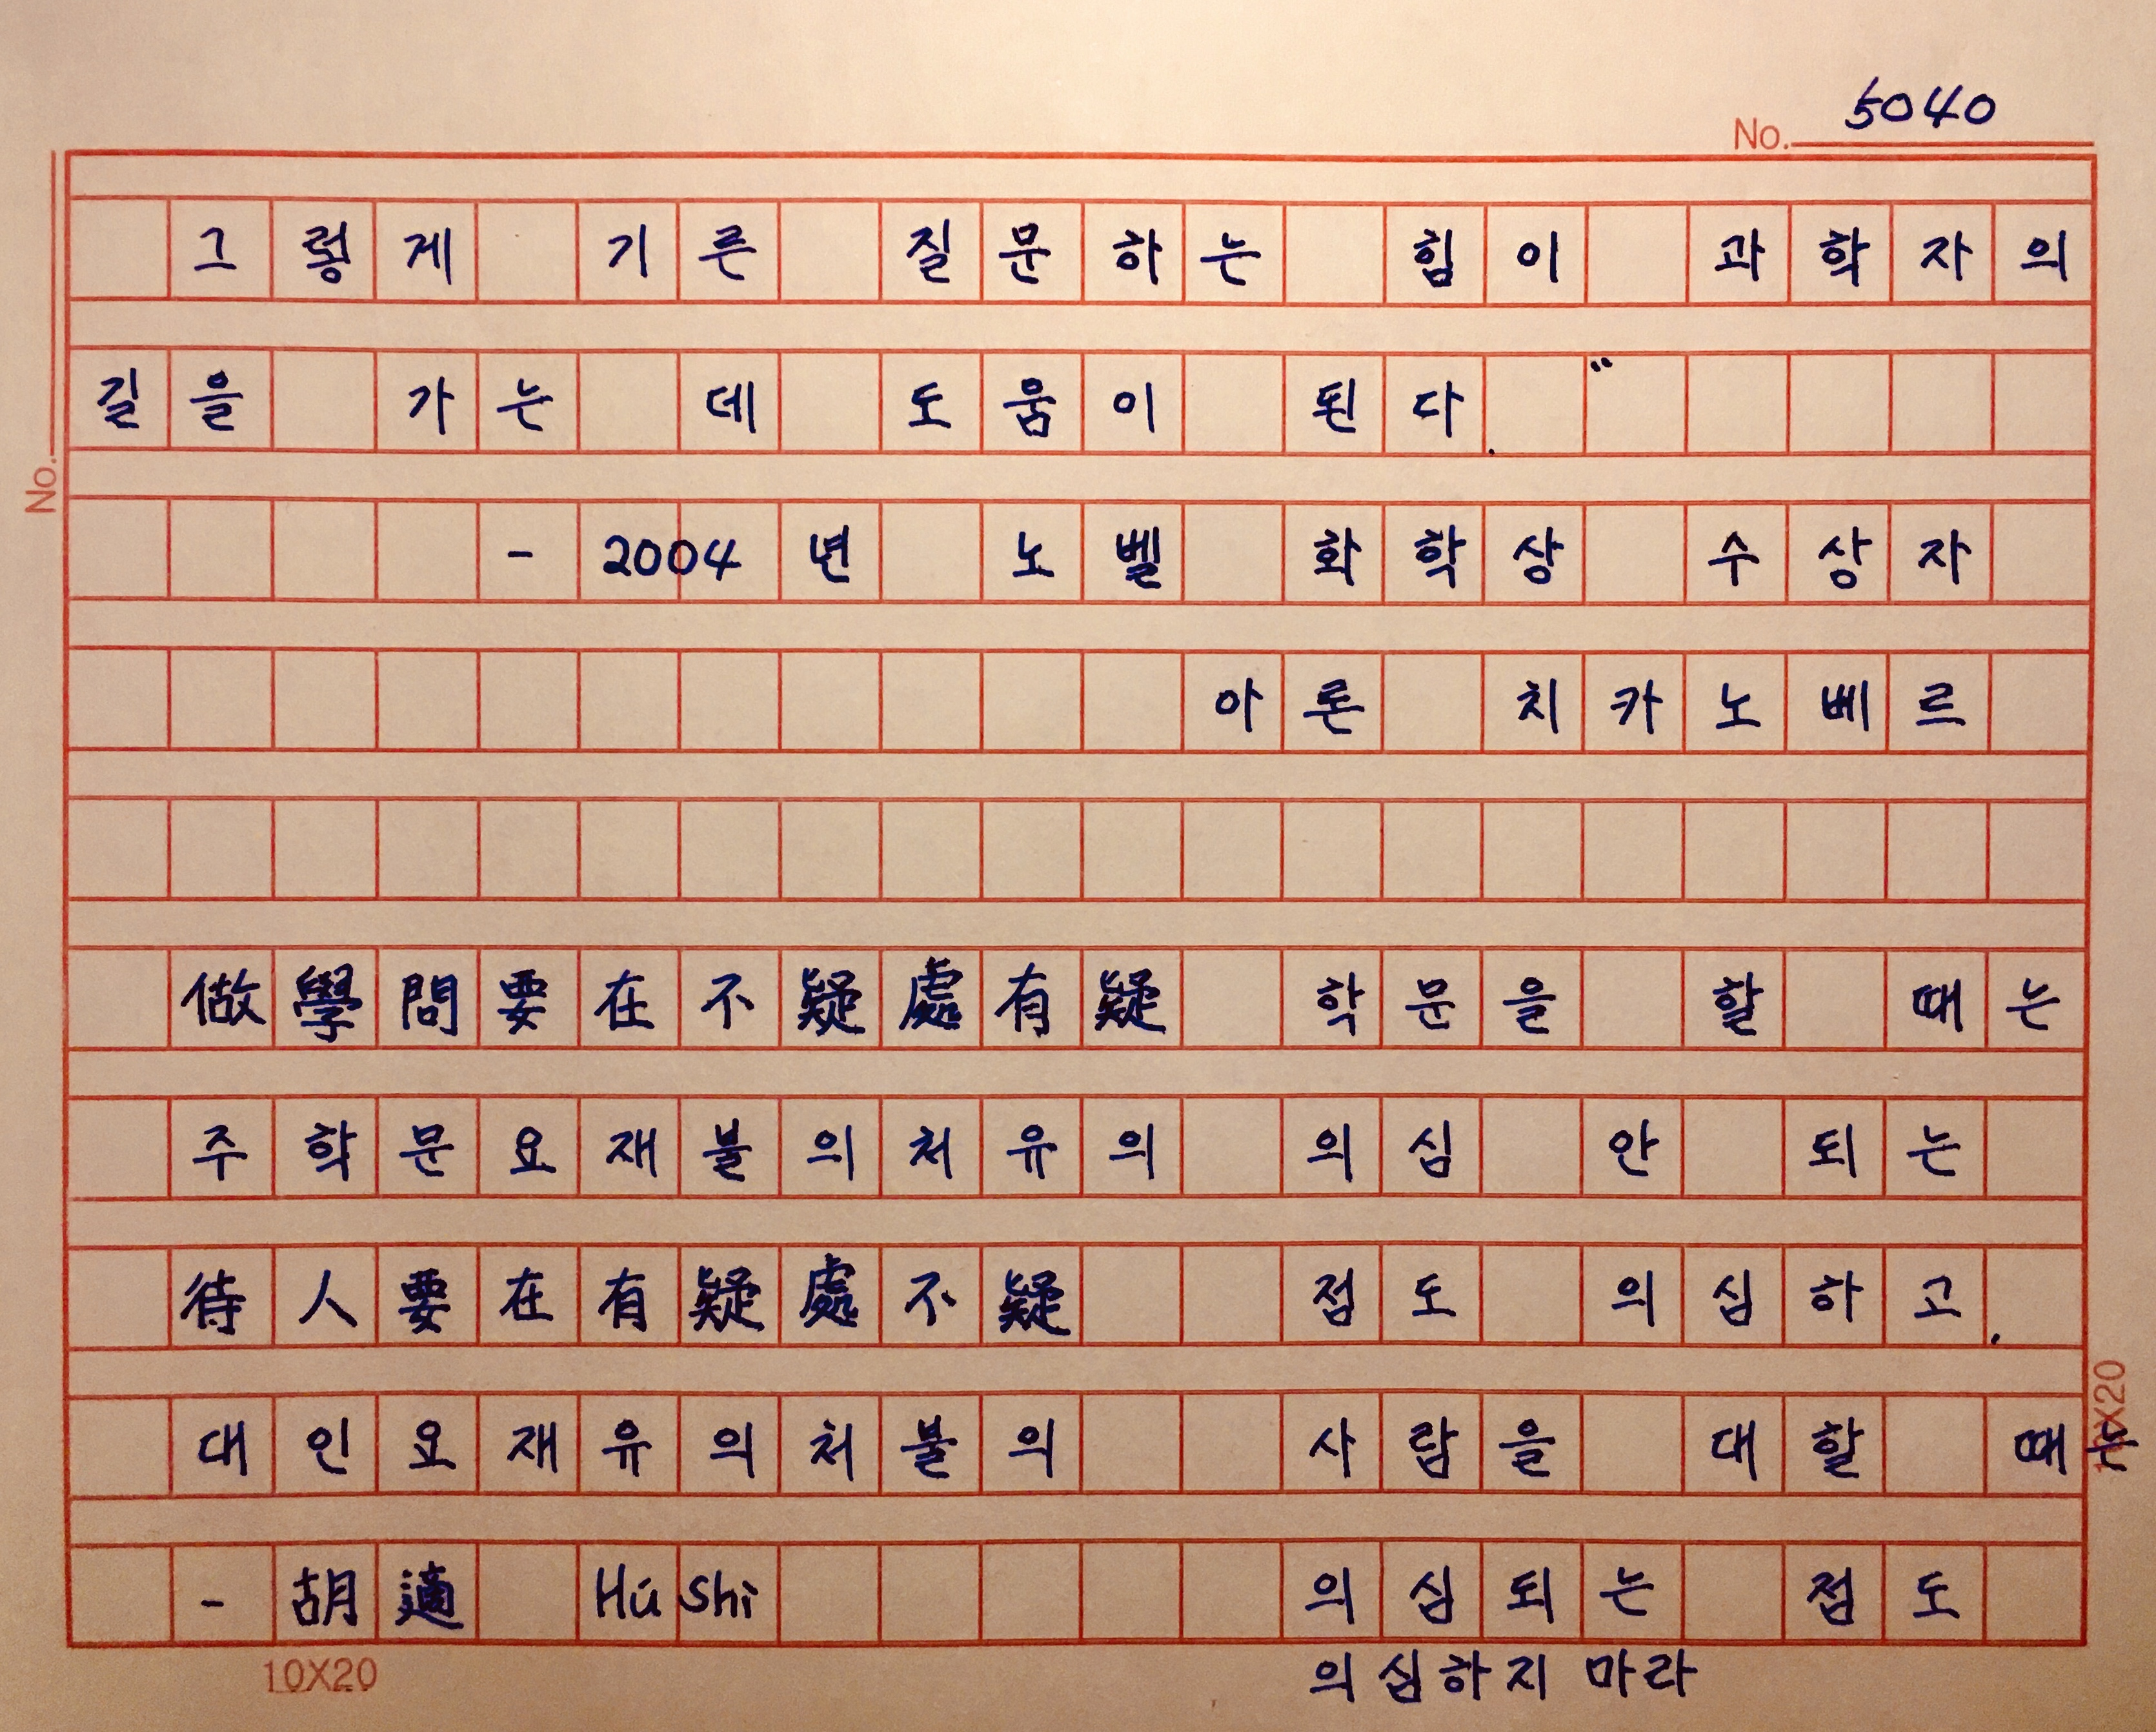 No. 5040
그렇게 기른 질문하는 힘이 과학자의
길을 가는 데 도움이 된다.”
No.
- 2004년 노벨 화학상 수상자
아론 치카노베르
做學問要在不疑處有疑 학문을 할 때는
주학문요재불의처유의 의심 안 되는
待人要在有疑處不疑 점도 의심하고,
대인요재유의처불의 사람을 대할 때는
- 胡適 Hú Shì 의심되는 점도
의심하지 마라
10X20
10X20